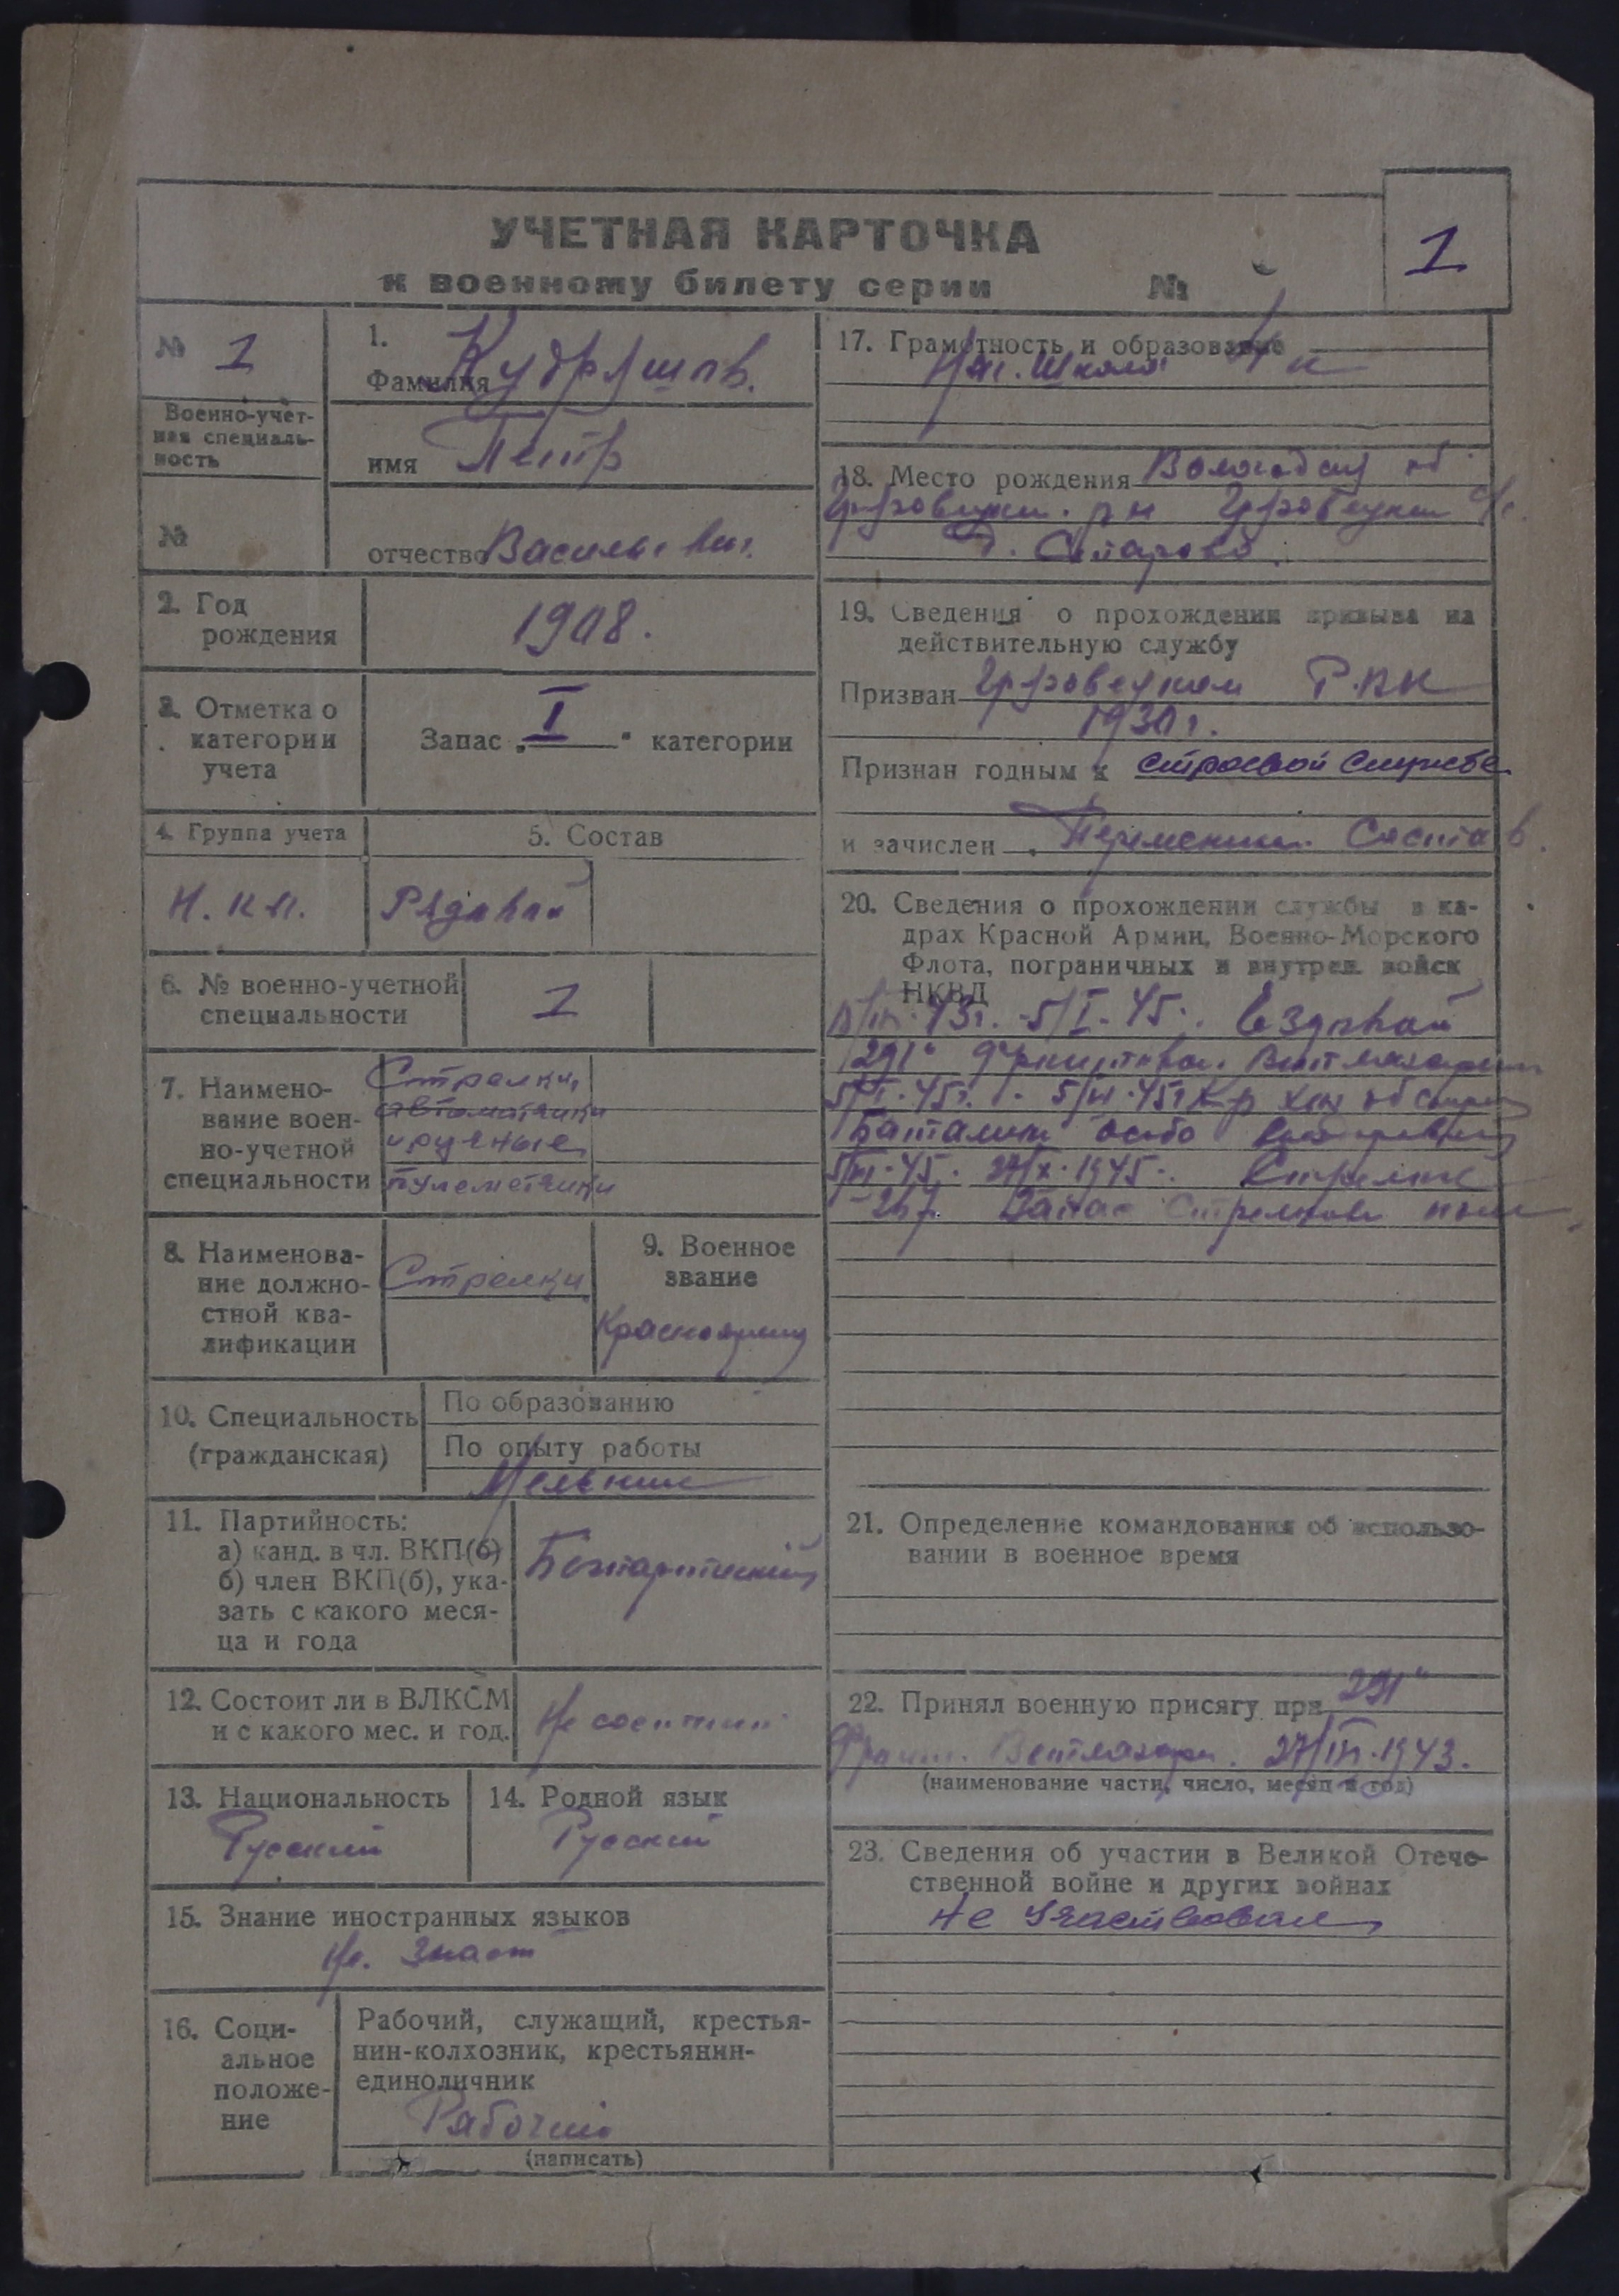 УЧЕТНАЯ КАРТОЧКА
к военному билету серии №
1
№ 1
Военно-учет-
ная специаль-
ность
№
1.
Фамилия Кудряшов.
имя Петр
отчество Васильевич.
2. Год
рождения
1908.
3. Отметка о
категории
учета
Запас „I" категории
4. Группа учета
5. Состав
Рядовой
6. № военно-учетной
специальности
1
7. Наимено-
вание воен-
но-учетной
специальности
Стрелки,
автоматчики
и ручные
пулеметчики
8. Наименова-
ние должно-
стной ква-
лификации
Стрелки
9. Военное
звание
Красноармец
10. Специальность
(гражданская)
По образованию
По опыту работы
Мельник
11. Партийность:
а) канд. в чл. ВКП(б)
б) член ВКП(б), ука-
зать с какого меся-
ца и года
Беспартийный
12. Состоит ли в ВЛКСМ
и с какого мес. и год.
Не состоит
13. Национальность
Русский
14. Родной язык
Русский
15. Знание иностранных языков
Не знает
16. Соци-
альное
положе-
ние
Рабочий, служащий, крестья-
нин-колхозник, крестьянин-
единоличник
Рабочий
(написать)
17. Грамотность и образование
Нач. школа 4 к
18. Место рождения Вологодск об
р-н с/с.
д.
19. Сведения о прохождении призыва на
действительную службу
Призван РВК
1930 г.
Признан годным к строевой службе
и зачислен Переменн. Состав.
20. Сведения о прохождении службы в ка-
драх Красной Армии, Военно-Морского
Флота, пограничных и внутрен. войск
НКВД
43г. - 5/I-45. ездовой
291й фронтовой Ветлазарет
5/I-45г.
Батальон особо
1945. Стрелок
Запас Стрелков полк
21. Определение командования об использо-
вании в военное время
22. Принял военную присягу при 291й
Фронт. Ветлазар. 27/III.1943.
(наименование части, число, месяц и год)
23. Сведения об участии в Великой Отече-
ственной войне и других войнах
Не участвовал